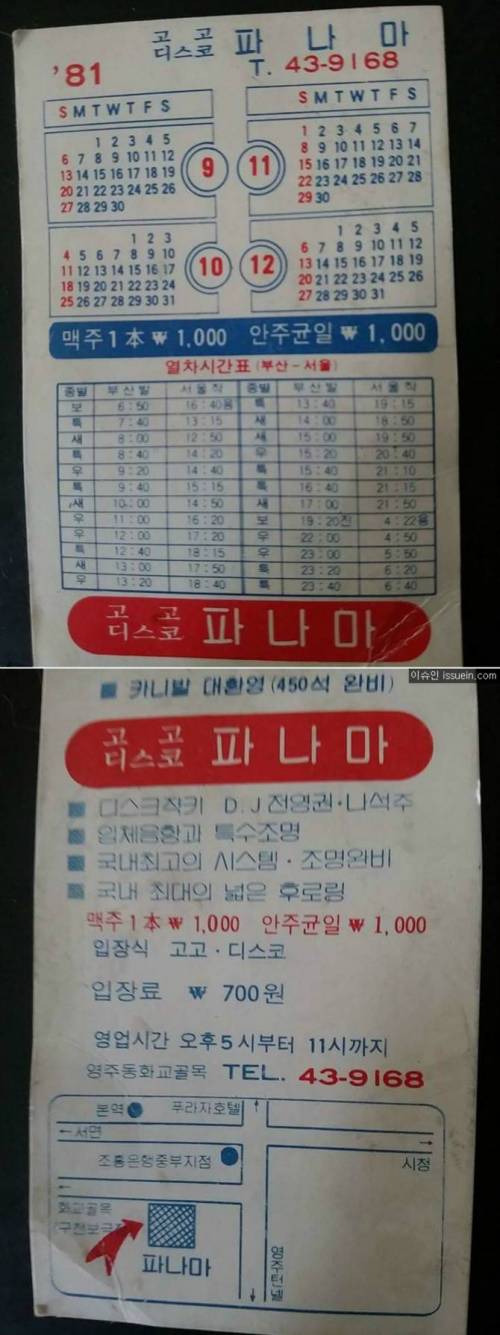 고고
디스코 파나마
'81 T. 43-9168
S M T W T F S
1 2 3 4 5
6 7 8 9 10 11 12
13 14 15 16 17 18 19
20 21 22 23 24 25 26
27 28 29 30
9
S M T W T F S
1 2 3 4 5 6 7
8 9 10 11 12 13 14
15 16 17 18 19 20 21
22 23 24 25 26 27 28
29 30
11
1 2 3
4 5 6 7 8 9 10
11 12 13 14 15 16 17
18 19 20 21 22 23 24
25 26 27 28 29 30 31
10
1 2 3 4 5
6 7 8 9 10 11 12
13 14 15 16 17 18 19
20 21 22 23 24 25 26
27 28 29 30 31
12
맥주1本 ₩ 1,000 안주균일 ₩ 1,000
열차시간표 (부산-서울)
종별 부산발 서울착 종별 부산발 서울착
보 6:50 16:40용 특 13:40 19:15
특 7:40 13:15 새 14:00 18:50
새 8:00 12:50 새 15:00 19:50
특 8:40 14:20 우 15:20 20:40
우 9:20 14:40 특 15:40 21:10
특 9:40 15:15 특 16:40 21:15
새 10:00 14:50 새 17:00 21:50
우 11:00 16:20 보 19:20진 4:22용
우 12:00 17:20 우 22:00 4:50
특 12:40 18:15 우 23:00 5:50
새 13:00 17:50 특 23:20 6:20
우 13:20 18:40 특 23:40 6:40
고고
디스코 파나마
이슈인 issuein.com
■ 카니발 대환영 (450석 완비)
고고
디스코 파나마
■ 디스크쟈키 D.J 전영권·나석주
■ 입체음향과 특수조명
■ 국내최고의 시스템·조명완비
■ 국내 최대의 넓은 후로링
맥주1本 ₩ 1,000 안주균일 ₩ 1,000
입장식 고고·디스코
입장료 ₩ 700원
영업시간 오후5시부터 11시까지
영주동화교골목 TEL. 43-9168
본역 푸라자호텔
←서면
조흥은행중부지점
시청
화교골목
파나마
영주터널